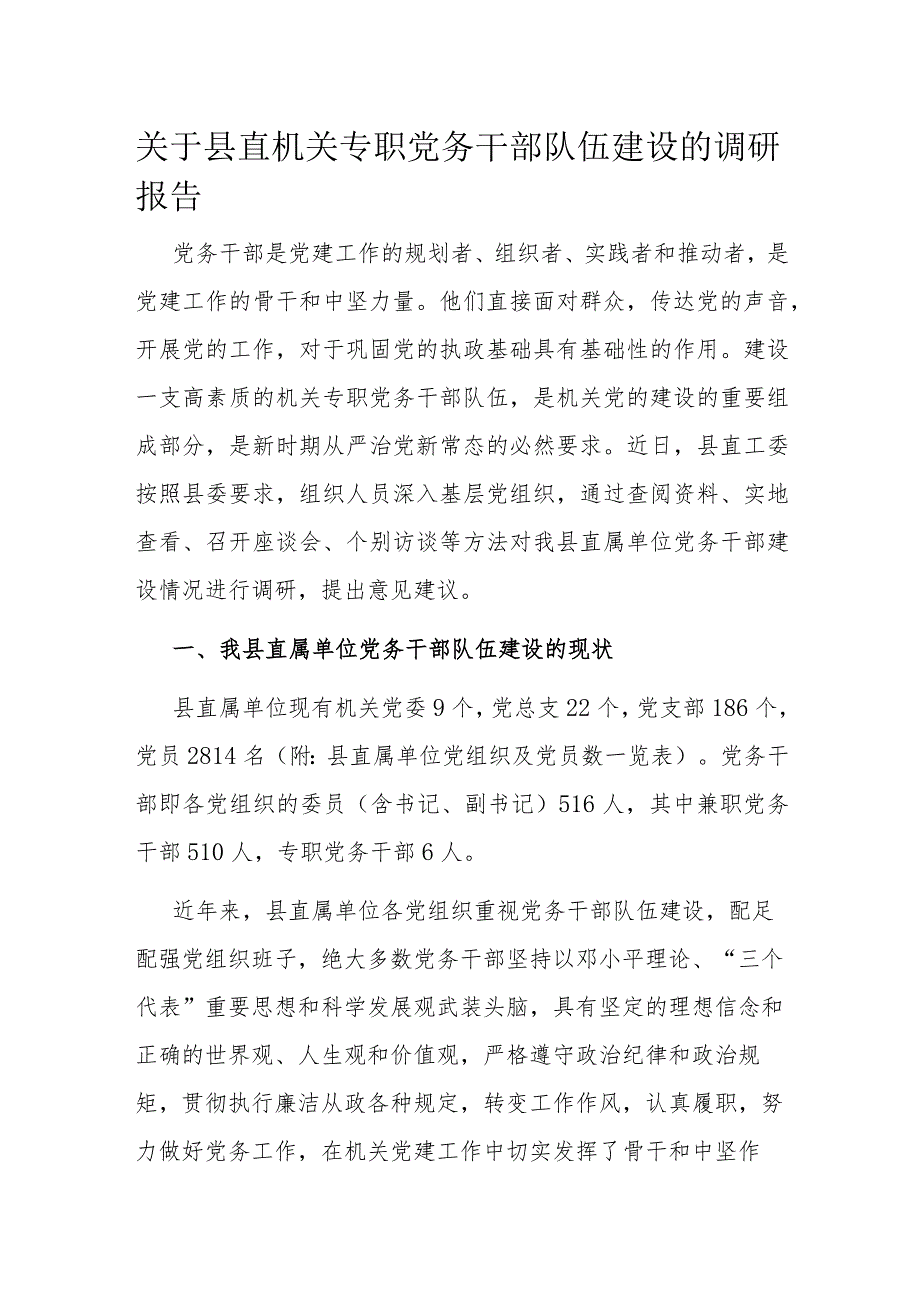 关于县直机关专职党务干部队伍建设的调研
报告
党务干部是党建工作的规划者、组织者、实践者和推动者，是
党建工作的骨干和中坚力量。他们直接面对群众，传达党的声音，
开展党的工作，对于巩固党的执政基础具有基础性的作用。建设
一支高素质的机关专职党务干部队伍，是机关党的建设的重要组
成部分，是新时期从严治党新常态的必然要求。近日，县直工委
按照县委要求，组织人员深入基层党组织，通过查阅资料、实地
查看、召开座谈会、个别访谈等方法对我县直属单位党务干部建
设情况进行调研，提出意见建议。
一、我县直属单位党务干部队伍建设的现状
县直属单位现有机关党委9个，党总支22个，党支部186个，
党员2814名（附：县直属单位党组织及党员数一览表）。党务干
部即各党组织的委员（含书记、副书记）516人，其中兼职党务
干部510人，专职党务干部6人。
近年来，县直属单位各党组织重视党务干部队伍建设，配足
配强党组织班子，绝大多数党务干部坚持以邓小平理论、“三个
代表”重要思想和科学发展观武装头脑，具有坚定的理想信念和
正确的世界观、人生观和价值观，严格遵守政治纪律和政治规
矩，贯彻执行廉洁从政各种规定，转变工作作风，认真履职，努
力做好党务工作，在机关党建工作中切实发挥了骨干和中坚作